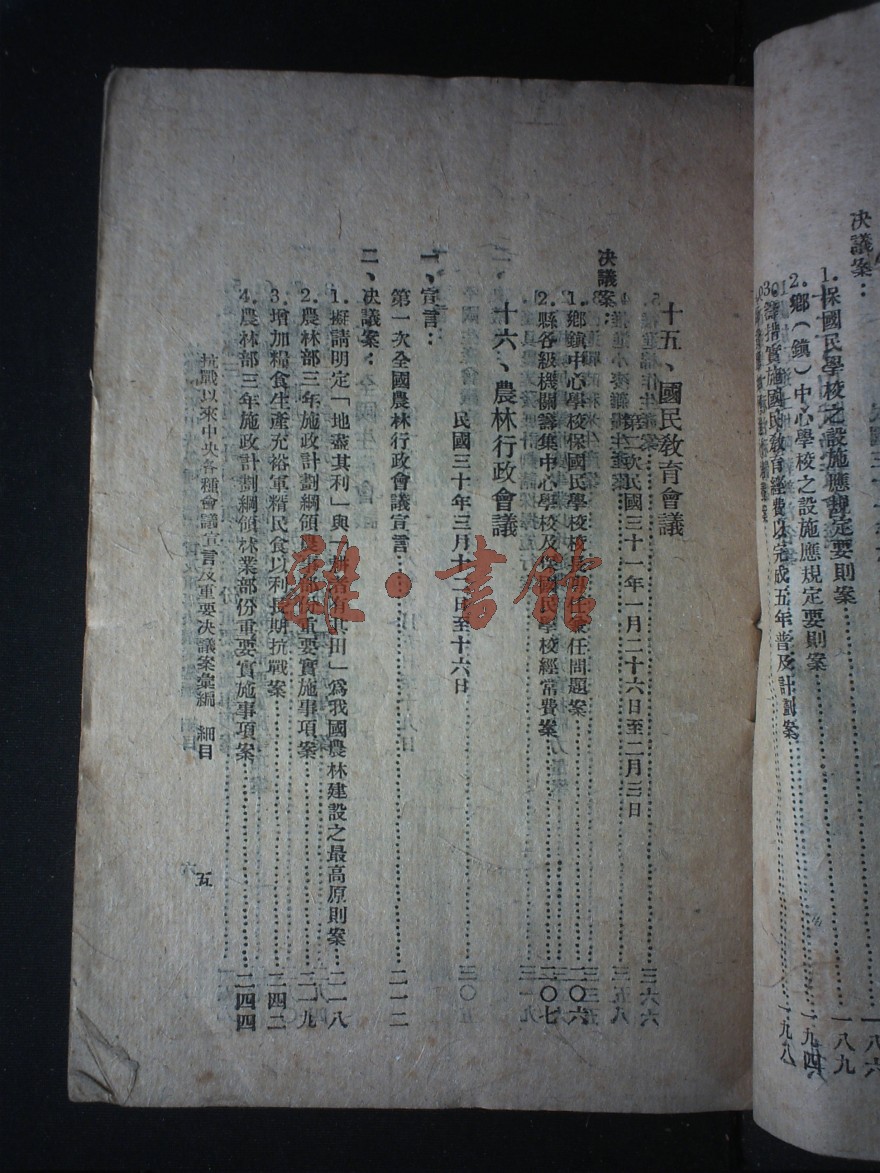 一八六
決議案：
1.保國民學校之設施應規定要則案……一八九
2.鄉（鎮）中心學校之設施應規定要則案……一九四
3.籌措實施國民教育經費以完成五年普及計劃案……一九八
十五、國民教育會議
第二次民國三十一年一月二十六日至二月三日
決議案：
1.鄉鎮中心學校保國民學校校長專任兼任問題案……二〇六
2.縣各級機關籌集中心學校及保國民學校經常費案……二〇七
十六、農林行政會議
民國三十年三月十二日至十六日
一、宣言：
第一次全國農林行政會議宣言……二一二
二、決議案：
1.擬請明定「地盡其利」與「耕者有其田」爲我國農林建設之最高原則案……二一八
2.農林部三年施政計劃綱領農事部份重要實施事項案……二一九
3.增加糧食生產充裕軍精民食以利長期抗戰案……二四二
4.農林部三年施政計劃綱領林業部份重要實施事項案……二四四
抗戰以來中央各種會議宣言及重要決議案彙編　細目　五
雜·書館